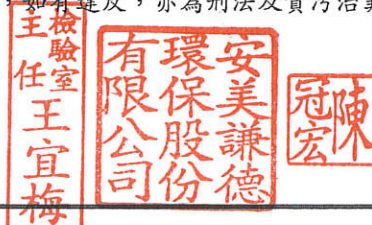 ,如有違反,亦為刑法及貪污治
檢驗室
主任王宜梅
安美謙德
環保股份
有限公司
陳
冠宏